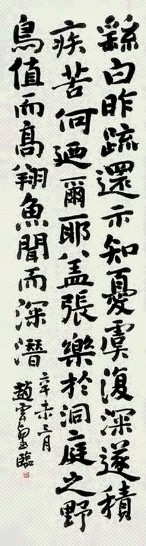 繇白昨疏還示知憂虞復深遂積
疾苦何迺爾耶蓋張樂於洞庭之野
鳥值而高翔魚聞而深潛
辛未三月
趙雲壑臨